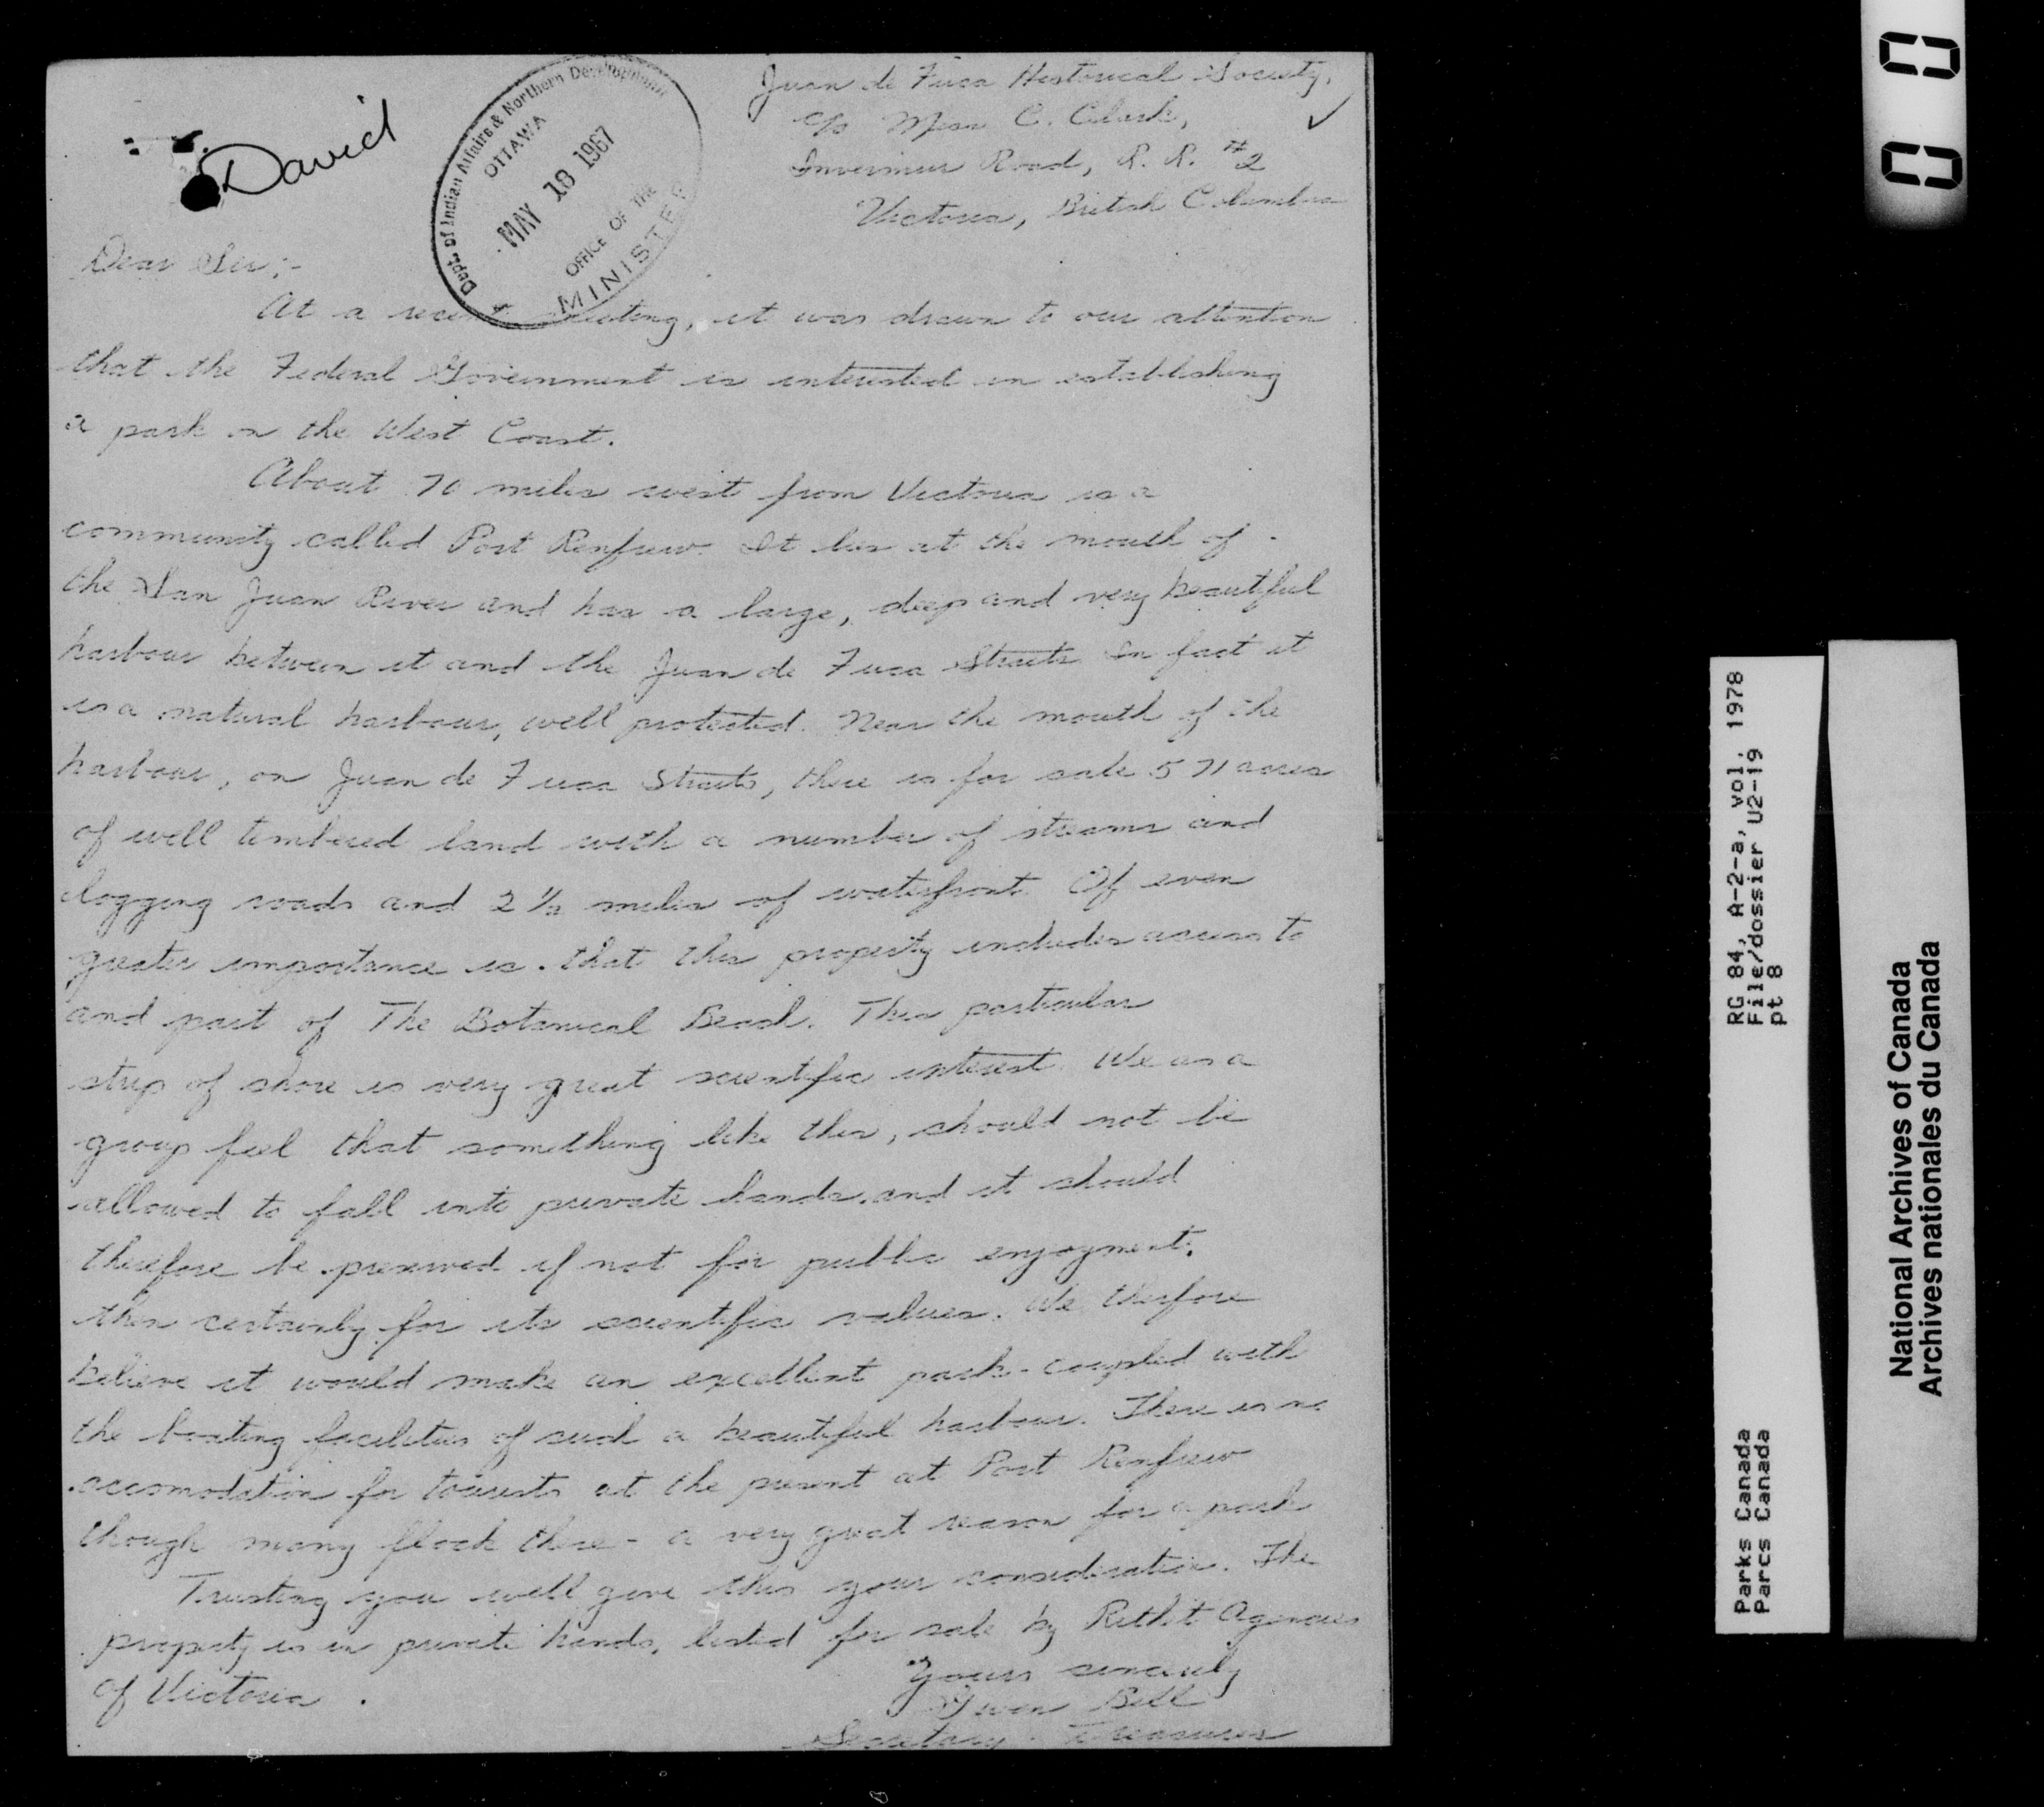 Juan de Fuca Historical Society,
c/o Miss C. Clark,
Road, R. R. #2
Victoria, British Columbia
David
Dept. of Indian Affairs & Northern Development
OTTAWA
MAY 18 1967
OFFICE OF THE
MINISTER
Dear Sir:-
At a recent meeting, it was drawn to our attention
that the Federal Government is interested in establishing
a park on the West Coast.
About 70 miles west from Victoria is a
community called Port Renfrew. It lies at the mouth of
the San Juan River and has a large, deep and very beautiful
harbour between it and the Juan de Fuca Straits. In fact it
is a natural harbour, well protected. Near the mouth of the
harbour, on Juan de Fuca Straits, there is for sale 571 acres
of well timbered land with a number of streams and
logging roads and 2 1/2 miles of waterfront. Of even
greater importance is that this property includes access to
and part of The Botanical Beach. This particular
strip of shore is very great scientific interest. We as a
group feel that something like this, should not be
allowed to fall into private hands and it should
therefore be preserved if not for public enjoyment,
then certainly for its scientific values. We therfore
believe it would make an excellent park - coupled with
the boating facilities of such a beautiful harbour. There is no
accomodation for tourists at the present at Port Renfrew
though many flock there - a very great reason for a park
Trusting you will give this your consideration. The
property is in private hands, listed for sale by Agencies
of Victoria.
Yours sincerely
Gwen Bell
Secretary - Treasurer
00
RG 84, A-2-a, vol. 1978
File/dossier U2-19
pt 8
Parks Canada
Parcs Canada
National Archives of Canada
Archives nationales du Canada